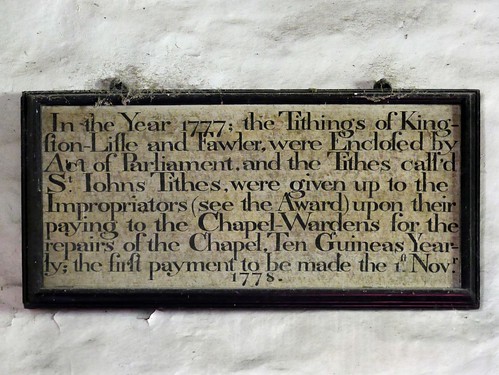 In the Year 1777; the Tithings of King-
ston-Lisle and Fawler, were Encloſed by
Act of Parliament, and the Tithes call'd
St. Iohns Tithes, were given up to the
Impropriators (see the Award) upon their
paying to the Chapel-Wardens for the
repairs of the Chapel, Ten Guineas Year-
ly; the first payment to be made the 1st. Novr.
1778.